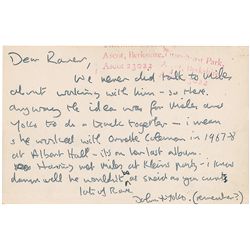 Ascot, Berkshire
Ascot 23022
Dear Raner,
We never did talk to Miles
about working with him – so Here.
anyway the idea was for Miles and
Yoko to do a track together – i mean
she worked with Ornette Coleman in 1967-8
at Albert Hall – its on her last album.
Having met miles at Kleins party – i know
damn well he wouldn't be as sneid as you cunts
lots of
John & Yoko. (remember?)